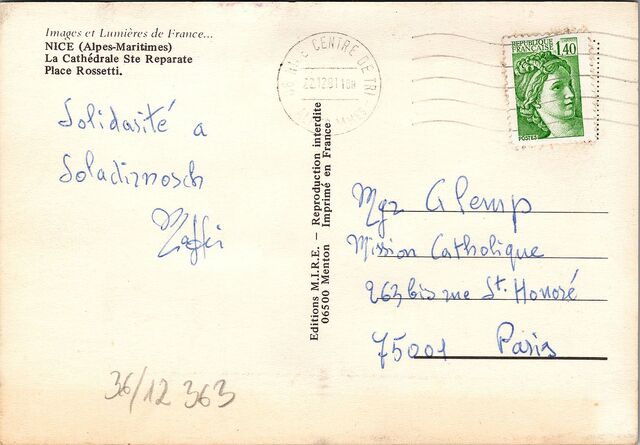 Images et Lumières de France...
NICE (Alpes-Maritimes)
La Cathédrale Ste Reparate
Place Rossetti.
Solidarité a
Soladirnosch
Editions M.I.R.E. — Reproduction interdite
06500 Menton Imprimé en France
NICE CENTRE DE TRI
22.1281 18H
REPUBLIQUE
FRANÇAISE
1,40
POSTES
Mgr Glemp
Mission Catholique
263 bis rue St. Honoré
75001 Paris
36/12 363